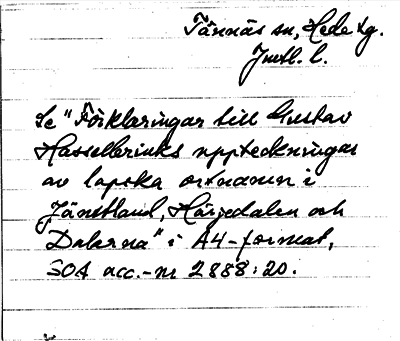 Tännäs sn, Hede tg.
Jmtl. l.
Se "Förklaringar till Gustav
Hasselbrinks uppteckningar
av lapska ortnamn i
Jämtland, Härjedalen och
Dalarna" i A4-format,
SOA acc.-nr 2888:20.